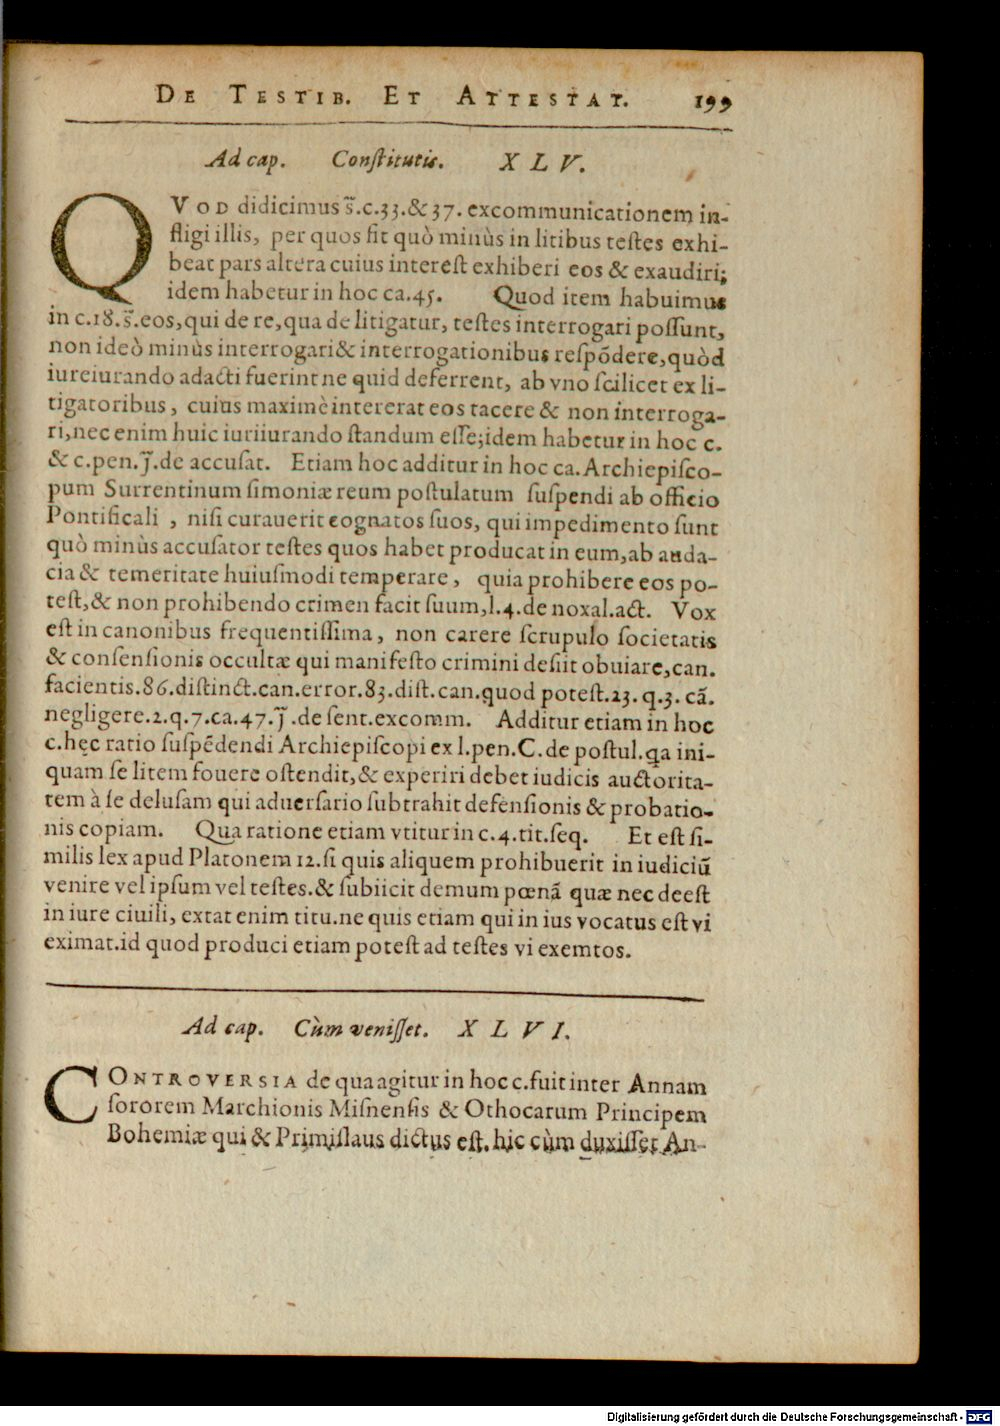 DE TESTIB. ET ATTESTAT. 199
Ad cap. Conſtitutis. XLV.
QVOD didicimus s̃.c.33.&37. excommunicationem in-
fligi illis, per quos fit quò minùs in litibus teſtes exhi-
beat pars altera cuius intereſt exhiberi eos & exaudiri;
idem habetur in hoc ca.45. Quod item habuimus
in c.18.s̃.eos,qui de re,qua de litigatur, teſtes interrogari poſſunt,
non ideò minùs interrogari& interrogationibus reſpõdere,quòd
iureiurando adacti fuerint ne quid deferrent, ab vno ſcilicet ex li-
tigatoribus, cuius maximè intererat eos tacere & non interroga-
ri,nec enim huic iuriiurando ſtandum eſſe;idem habetur in hoc c.
& c.pen.j̃.de accuſat. Etiam hoc additur in hoc ca.Archiepiſco-
pum Surrentinum ſimoniæ reum poſtulatum ſuſpendi ab officio
Pontificali , niſi curauerit cognatos ſuos, qui impedimento ſunt
quò minùs accuſator teſtes quos habet producat in eum,ab auda-
cia & temeritate huiuſmodi temperare, quia prohibere eos po-
teſt,& non prohibendo crimen facit ſuum,l.4.de noxal.act. Vox
eſt in canonibus frequentiſſima, non carere ſcrupulo ſocietatis
& conſenſionis occultæ qui manifeſto crimini deſiit obuiare,can.
facientis.86.diſtinct.can.error.83.diſt.can.quod poteſt.23.q.3.cã.
negligere.2.q.7.ca.47.j̃.de ſent.excomm. Additur etiam in hoc
c.hęc ratio ſuſpẽdendi Archiepiſcopi ex l.pen.C.de poſtul.qa ini-
quam ſe litem fouere oſtendit,& experiri debet iudicis auctorita-
tem à ſe deluſam qui aduerſario ſubtrahit defenſionis & probatio-
nis copiam. Qua ratione etiam vtitur in c.4.tit.ſeq. Et eſt ſi-
milis lex apud Platonem 12.ſi quis aliquem prohibuerit in iudiciũ
venire vel ipſum vel teſtes.& ſubiicit demum pœnã quæ nec deeſt
in iure ciuili, extat enim titu.ne quis etiam qui in ius vocatus eſt vi
eximat.id quod produci etiam poteſt ad teſtes vi exemtos.
Ad cap. Cùm veniſſet. XLVI.
CONTROVERSIA de qua agitur in hoc c.fuit inter Annam
ſororem Marchionis Miſnenſis & Othocarum Principem
Bohemiæ qui & Primiſlaus dictus eſt. hic cùm duxiſſet An-
Digitalisierung gefördert durch die Deutsche Forschungsgemeinschaft - DFG